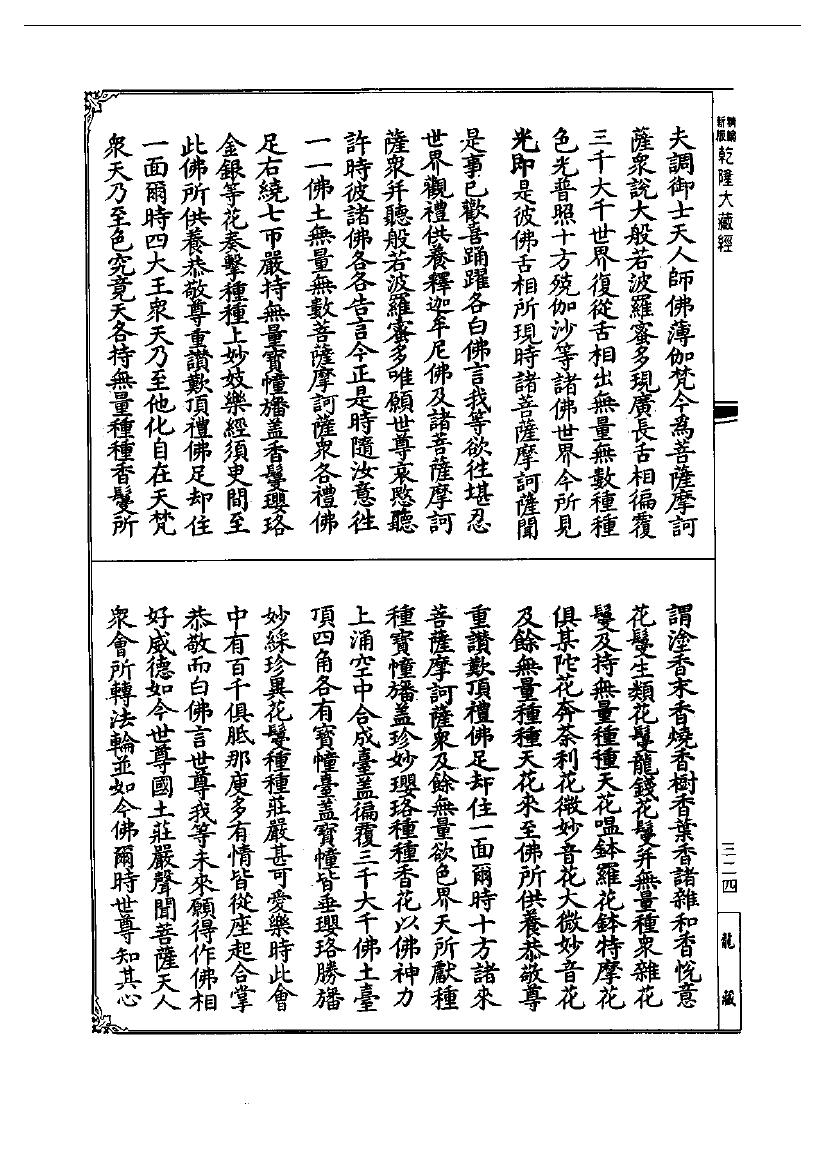 新編
新版
乾隆大藏經
夫調御士天人師佛薄伽梵今為菩薩摩訶
薩衆說大般若波羅蜜多現廣長舌相徧覆
三千大千世界復從舌相出無量無數種種
色光普照十方殑伽沙等諸佛世界今所見
光即是彼佛舌相所現時諸菩薩摩訶薩聞
是事已歡喜踊躍各白佛言我等欲往堪忍
世界觀禮供養釋迦牟尼佛及諸菩薩摩訶
薩衆并聽般若波羅蜜多唯願世尊哀愍聽
許時彼諸佛各各告言今正是時隨汝意往
一一佛土無量無數菩薩摩訶薩衆各禮佛
足右繞七帀嚴持無量寶幢旛蓋香鬘瓔珞
金銀等花奏擊種種上妙妓樂經須臾間至
此佛所供養恭敬尊重讚歎頂禮佛足却住
一面爾時四大王衆天乃至他化自在天梵
衆天乃至色究竟天各持無量種種香鬘所
謂塗香末香燒香樹香葉香諸雜和香悅意
花鬘生類花鬘龍錢花鬘并無量種衆雜花
鬘及持無量種種天花嗢鉢羅花鉢特摩花
俱某陀花奔荼利花微妙音花大微妙音花
及餘無量種種天花來至佛所供養恭敬尊
重讚歎頂禮佛足却住一面爾時十方諸來
菩薩摩訶薩衆及餘無量欲色界天所獻種
種寶幢旛蓋珍妙瓔珞種種香花以佛神力
上涌空中合成臺蓋徧覆三千大千佛土臺
頂四角各有寶幢臺蓋寶幢皆垂瓔珞勝旛
妙綵珍異花鬘種種莊嚴甚可愛樂時此會
中有百千俱胝那庾多有情皆從座起合掌
恭敬而白佛言世尊我等未來願得作佛相
好威德如今世尊國土莊嚴聲聞菩薩天人
衆會所轉法輪並如今佛爾時世尊知其心
三一二四
龍藏